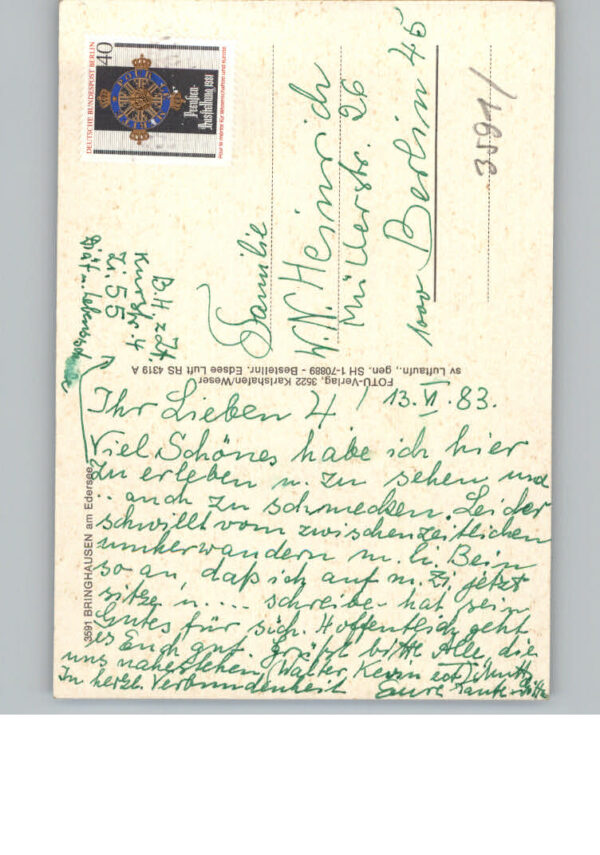 DEUTSCHE BUNDESPOST BERLIN
40
POUR LE MERITE
Preußen-
Ausstellung 1981
Pour le mérite für Wissenschaften und Künste
z. Zt.
Kurstr. 4
Zi. 55
Familie
W. N. Heinrich
Müllerstr. 26
1000 Berlin 45
3591/
sv Luftaufn., gen. SH 1-70889 - Bestellnr. Edsee Luft RS 4319 A
FOTÜ-Verlag, 3522 Karlshafen/Weser
3591 BRINGHAUSEN am Edersee
Ihr Lieben 4! 13. VI. 83.
Viel Schönes habe ich hier
zu erleben u. zu sehen und
.. auch zu schmecken. Leider
schwillt vom zwischenzeitlichen
umherwandern m. li. Bein
so an, daß ich auf m. Zi. jetzt
sitze u.... schreibe - hat sein
Gutes für sich. Hoffentlich geht
es Euch gut. Grüßt bitte Alle, die
uns nahestehen, (Walter, Kevin
In herzl. Verbundenheit Eure Tante